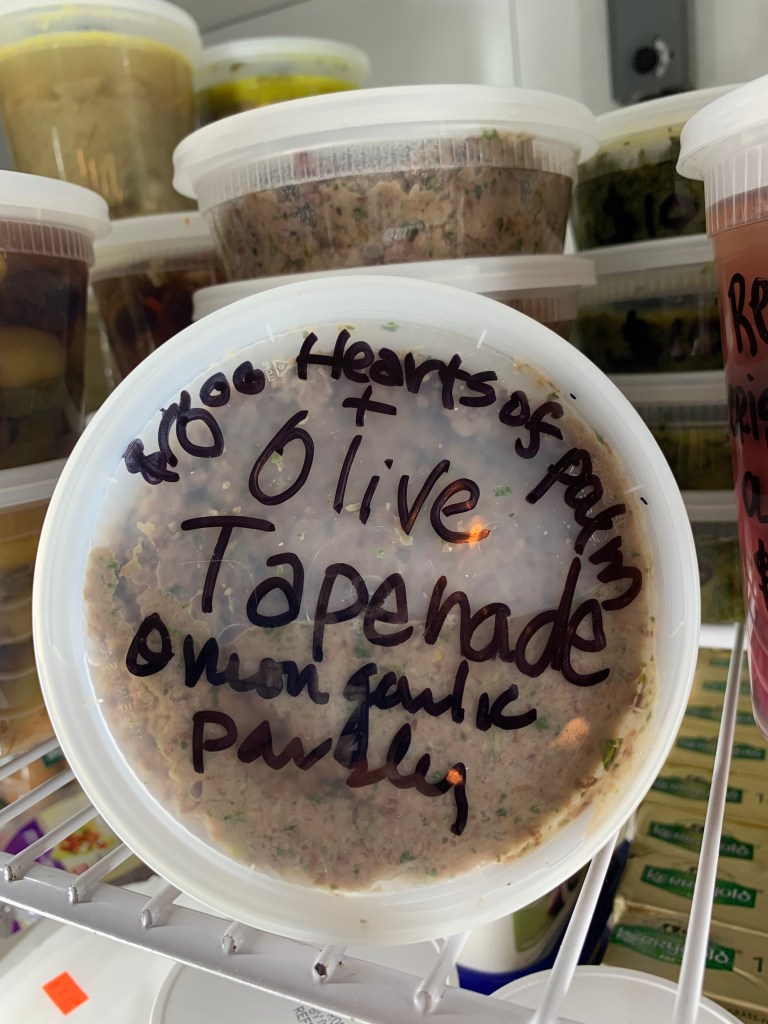 $10.00 Hearts of Palm
+
Olive
Tapenade
Onion garlic
parsley
$10
KERRYGOLD
KERRYGOLD
KERRYGOLD